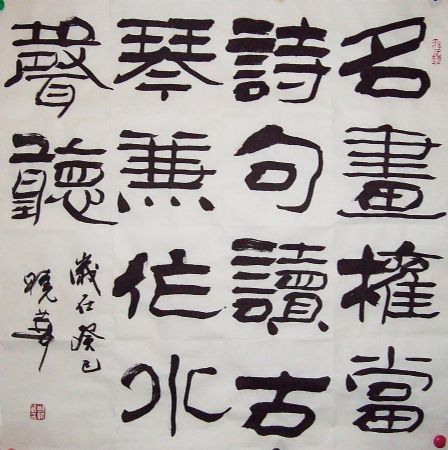 名畫權當
詩句讀古
琴兼作水
聲聽
歲在癸巳
曉華